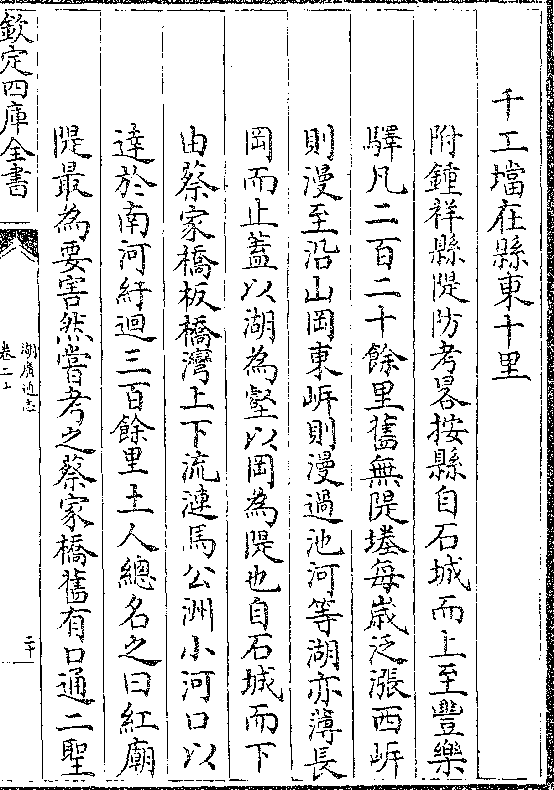 千工壋在縣東十里
附鍾祥縣隄防考畧按縣自石城而上至豐樂
驛凡二百二十餘里舊無隄塂每歲泛漲西岍
則漫至沿山岡東岍則漫過池河等湖亦薄長
岡而止蓋以湖為壑以岡為隄也自石城而下
由蔡家橋板橋灣上下流漣馬公洲小河口以
達於南河紆迴三百餘里土人總名之曰紅廟
隄最為要害然嘗考之蔡家橋舊有口通二聖
欽定四庫全書
湖廣通志
卷二十
二十